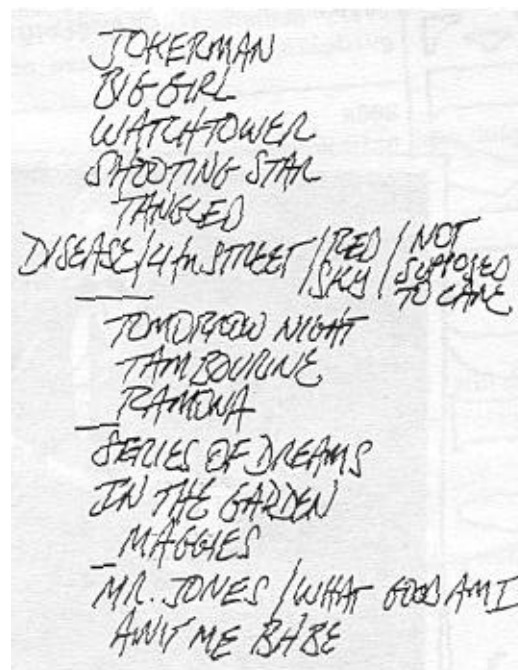 JOKERMAN
BIG GIRL
WATCHTOWER
SHOOTING STAR
TANGLED
DISEASE/4th STREET/RED SKY/NOT SUPPOSED TO CARE
TOMORROW NIGHT
TAMBOURINE
RAMONA
SERIES OF DREAMS
IN THE GARDEN
MAGGIES
MR. JONES/WHAT GOOD AM I
AINT ME BABE